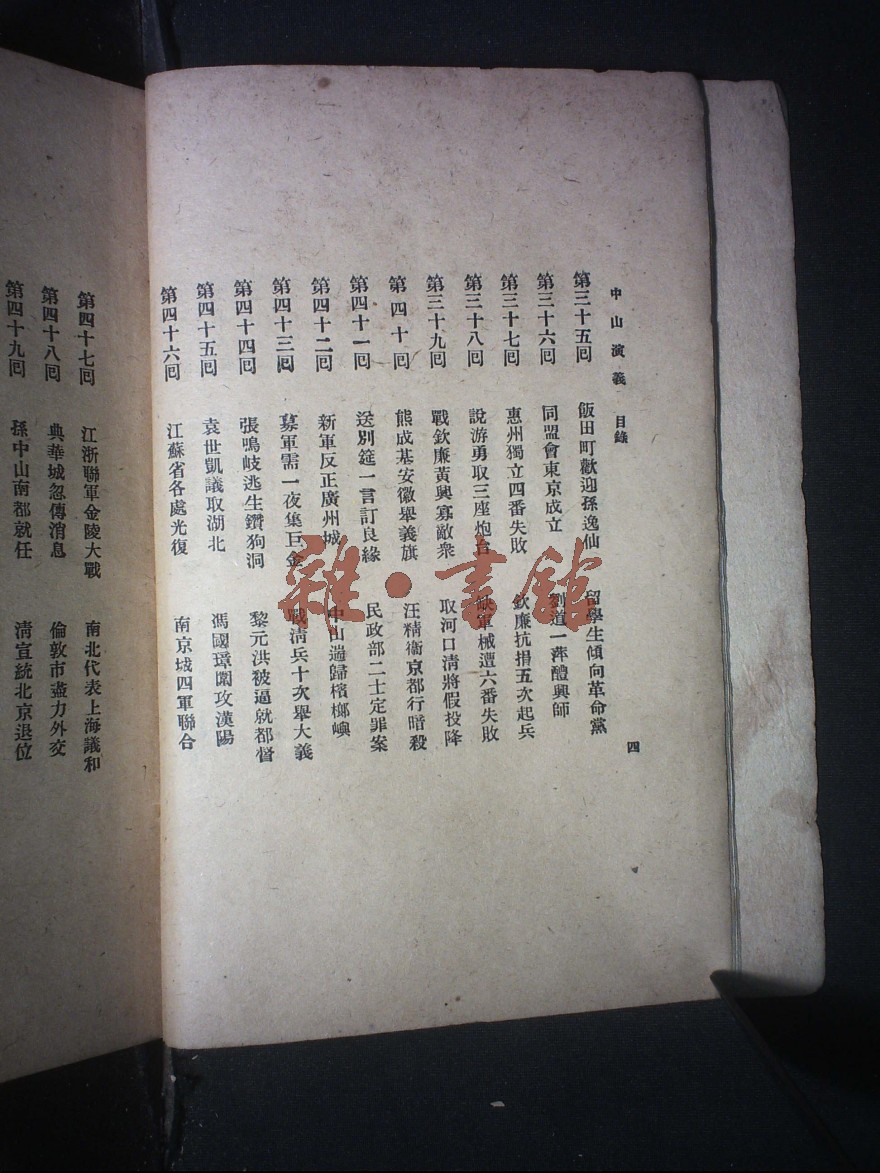 中山演義 目錄
四
第三十五囘 飯田町歡迎孫逸仙 留學生傾向革命黨
第三十六囘 同盟會東京成立 劉道一萍醴興師
第三十七囘 惠州獨立四番失敗 欽廉抗捐五次起兵
第三十八囘 說游勇取三座炮台 缺軍械遭六番失敗
第三十九囘 戰欽廉黃興寡敵衆 取河口清將假投降
第四十囘 熊成基安徽舉義旗 汪精衞京都行暗殺
第四十一囘 送別筵一言訂良緣 民政部二士定罪案
第四十二囘 新軍反正廣州城 中山遄歸檳榔嶼
第四十三囘 募軍需一夜集巨金 戰清兵十次舉大義
第四十四囘 張鳴岐逃生鑽狗洞 黎元洪被逼就都督
第四十五囘 袁世凱議取湖北 馮國璋圍攻漢陽
第四十六囘 江蘇省各處光復 南京城四軍聯合
第四十七囘 江浙聯軍金陵大戰 南北代表上海議和
第四十八囘 典華城忽傳消息 倫敦市盡力外交
第四十九囘 孫中山南都就任 清宣統北京退位
雜·書館